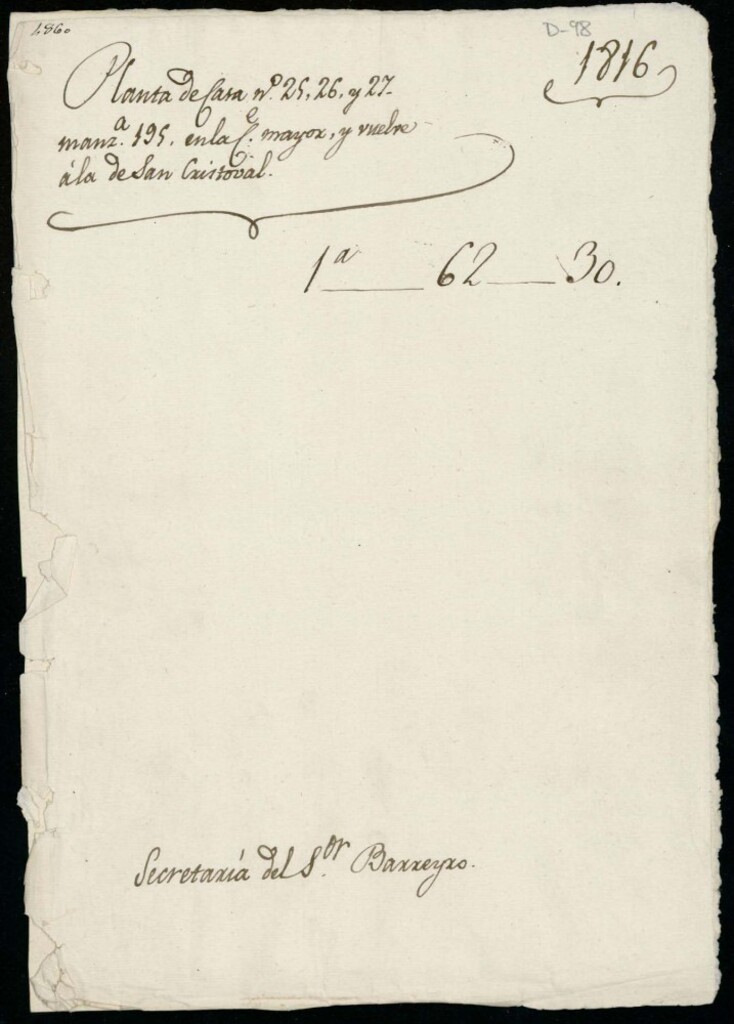 1860
D-98
1816
Planta de Casa nº. 25, 26, y 27.
manz.ª 195. en la C.e mayor, y vuelve
á la de San Cristoval.
1ª ___ 62 ___ 30.
Secretaría del S.or Barreyro.